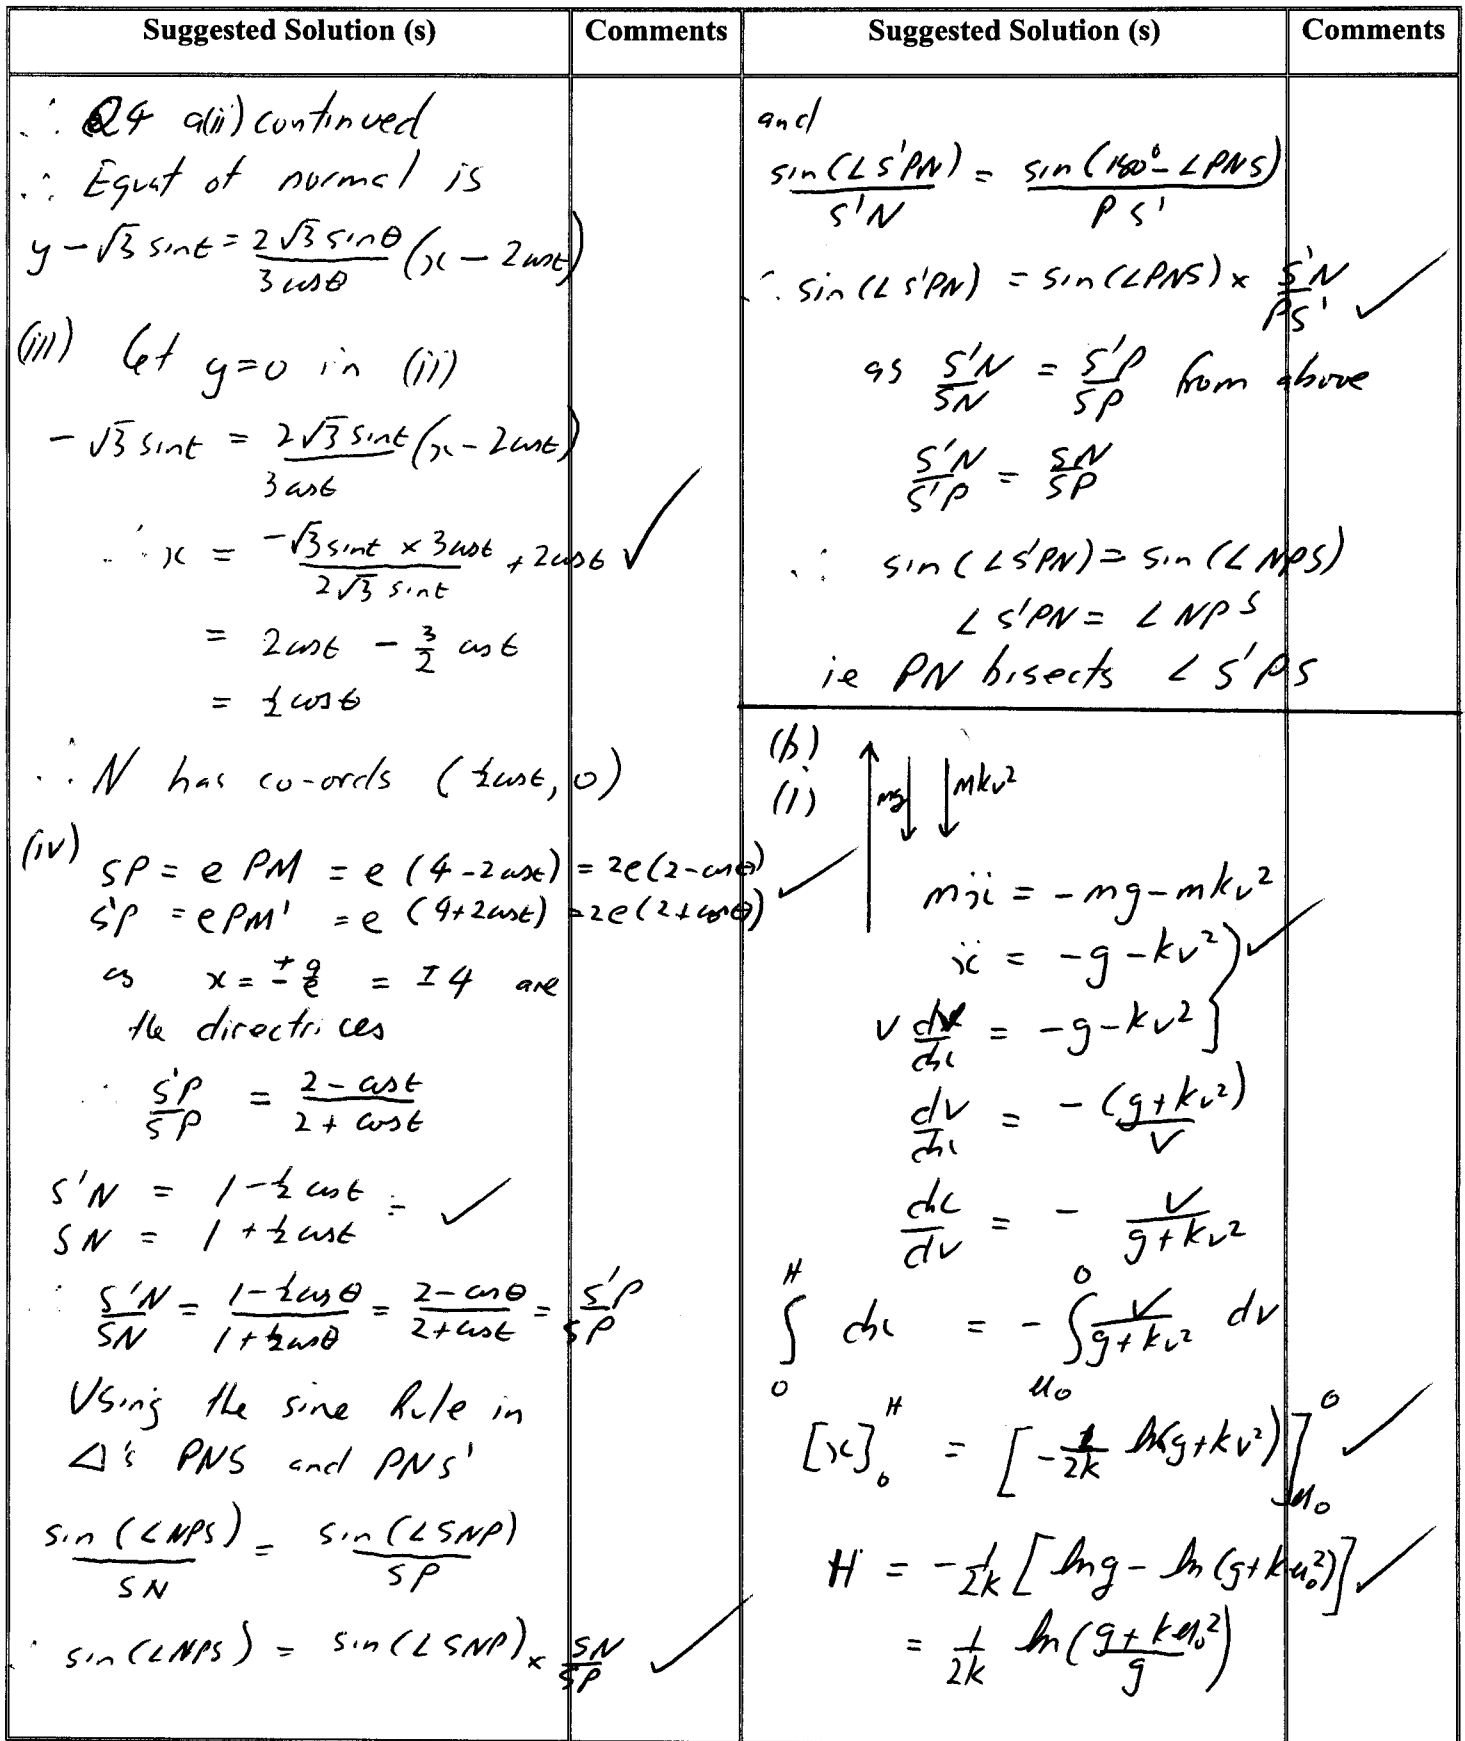 Suggested Solution (s) Comments Suggested Solution (s) Comments
∴ Q4 a(ii) continued
∴ Equat of normal is
y - √3 sint = 2√3 sinθ / 3cosθ (x - 2cost)
(iii) let y=0 in (ii)
- √3 sint = 2√3 sint / 3cost (x - 2cost)
∴ x = -√3 sint × 3cost / 2√3 sint + 2cost ✓
= 2cost - 3/2 cost
= ½ cost
∴ N has co-ords (½cost, 0)
(iv) SP = e PM = e (4-2cost) = 2e(2-cosθ)
S'P = ePM' = e (4+2cost) = 2e(2+cosθ) ✓
as x = ± a/e = ±4 are
the directrices
∴ S'P/SP = 2-cost / 2+cost
S'N = 1-½ cost
SN = 1+½ cost ✓
∴ S'N/SN = 1-½cosθ / 1+½cosθ = 2-cosθ / 2+cost = S'P/SP
Using the sine Rule in
Δ's PNS and PNS'
sin(∠NPS) / SN = sin(∠SNP) / SP
∴ sin(∠NPS) = sin(∠SNP) × SN/SP ✓
and
sin(∠S'PN) / S'N = sin(180°-∠PNS) / PS'
∴ sin(∠S'PN) = sin(∠PNS) × S'N/PS' ✓
as S'N/SN = S'P/SP from above
S'N/S'P = SN/SP
∴ sin(∠S'PN) = sin(∠NPS)
∠S'PN = ∠NPS
ie PN bisects ∠S'PS
(b)
(i) mg mkv²
mẍ = -mg-mkv²
ẍ = -g-kv² ✓
v dv/dx = -g-kv²
dv/dx = -(g+kv²)/v
dx/dv = - v/(g+kv²)
∫₀ᴴ dx = -∫_{u₀}^{0} v/(g+kv²) dv
[x]₀ᴴ = [-1/2k ln(g+kv²)]_{u₀}^{0} ✓
H = -1/2k [ln g - ln(g+ku₀²)] ✓
= 1/2k ln(g+ku₀² / g)